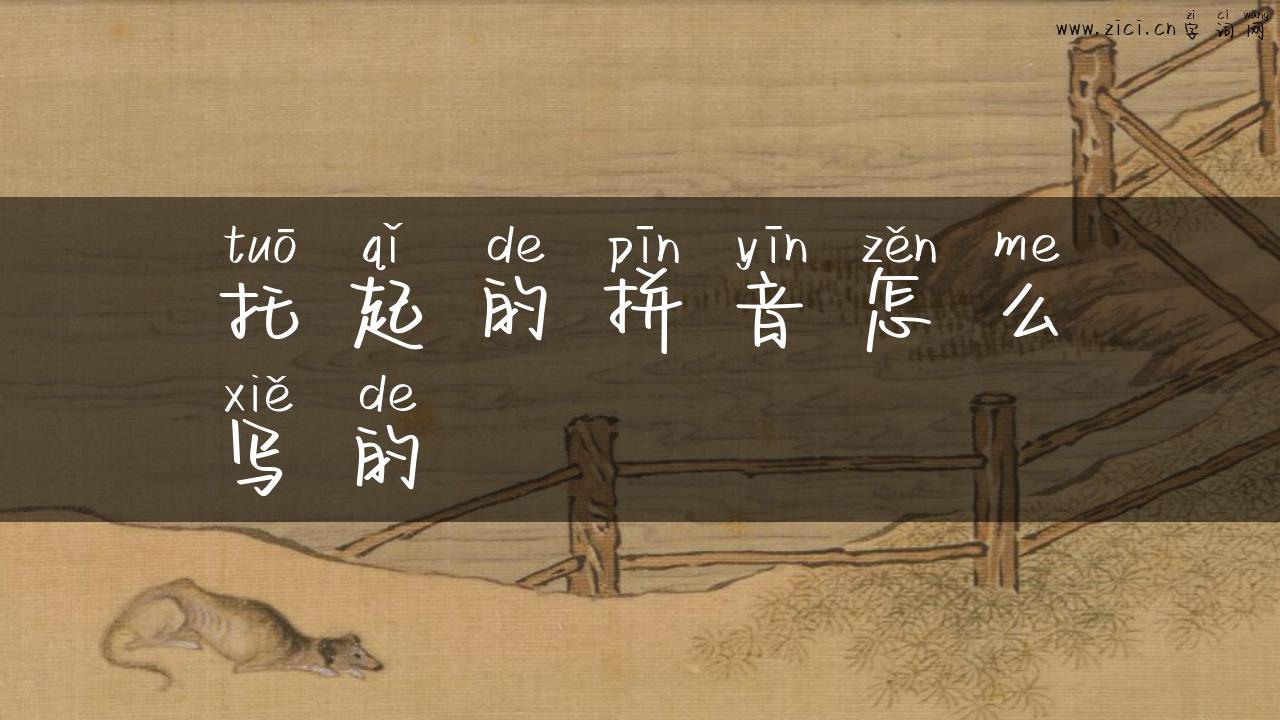 zi ci wang
www.zici.cn字词网
tuō qǐ de pīn yīn zěn me
托起的拼音怎么
xiě de
写的